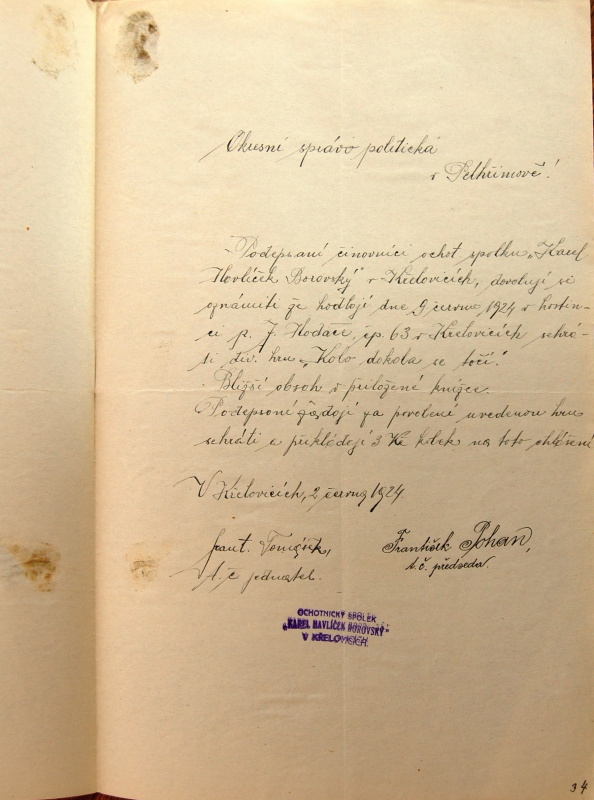 Okresní správo politická
v Pelhřimově!
Podepsaní činovníci ochot spolku „Karel
Havlíček Borovský" v Křelovicích, dovolují si
oznámiti že hodlají dne 9 června 1924 v hostin-
ci p. J. Hodače, čp. 63 v Křelovicích sehrá-
ti div. hru „Kolo dokola se točí!
Bližší obsah v přiložené knížce.
Podepsaní žádají za povolení uvedenou hru
sehráti a přikládají 3 Kč kolek na toto ohlášení
V Křelovicích, 2 června 1924
Frant. Tomášek,
t. č. jednatel.
František Pohan,
t. č. předseda
OCHOTNICKÝ SPOLEK
„KAREL HAVLÍČEK BOROVSKÝ"
V KŘELOVICÍCH.
34